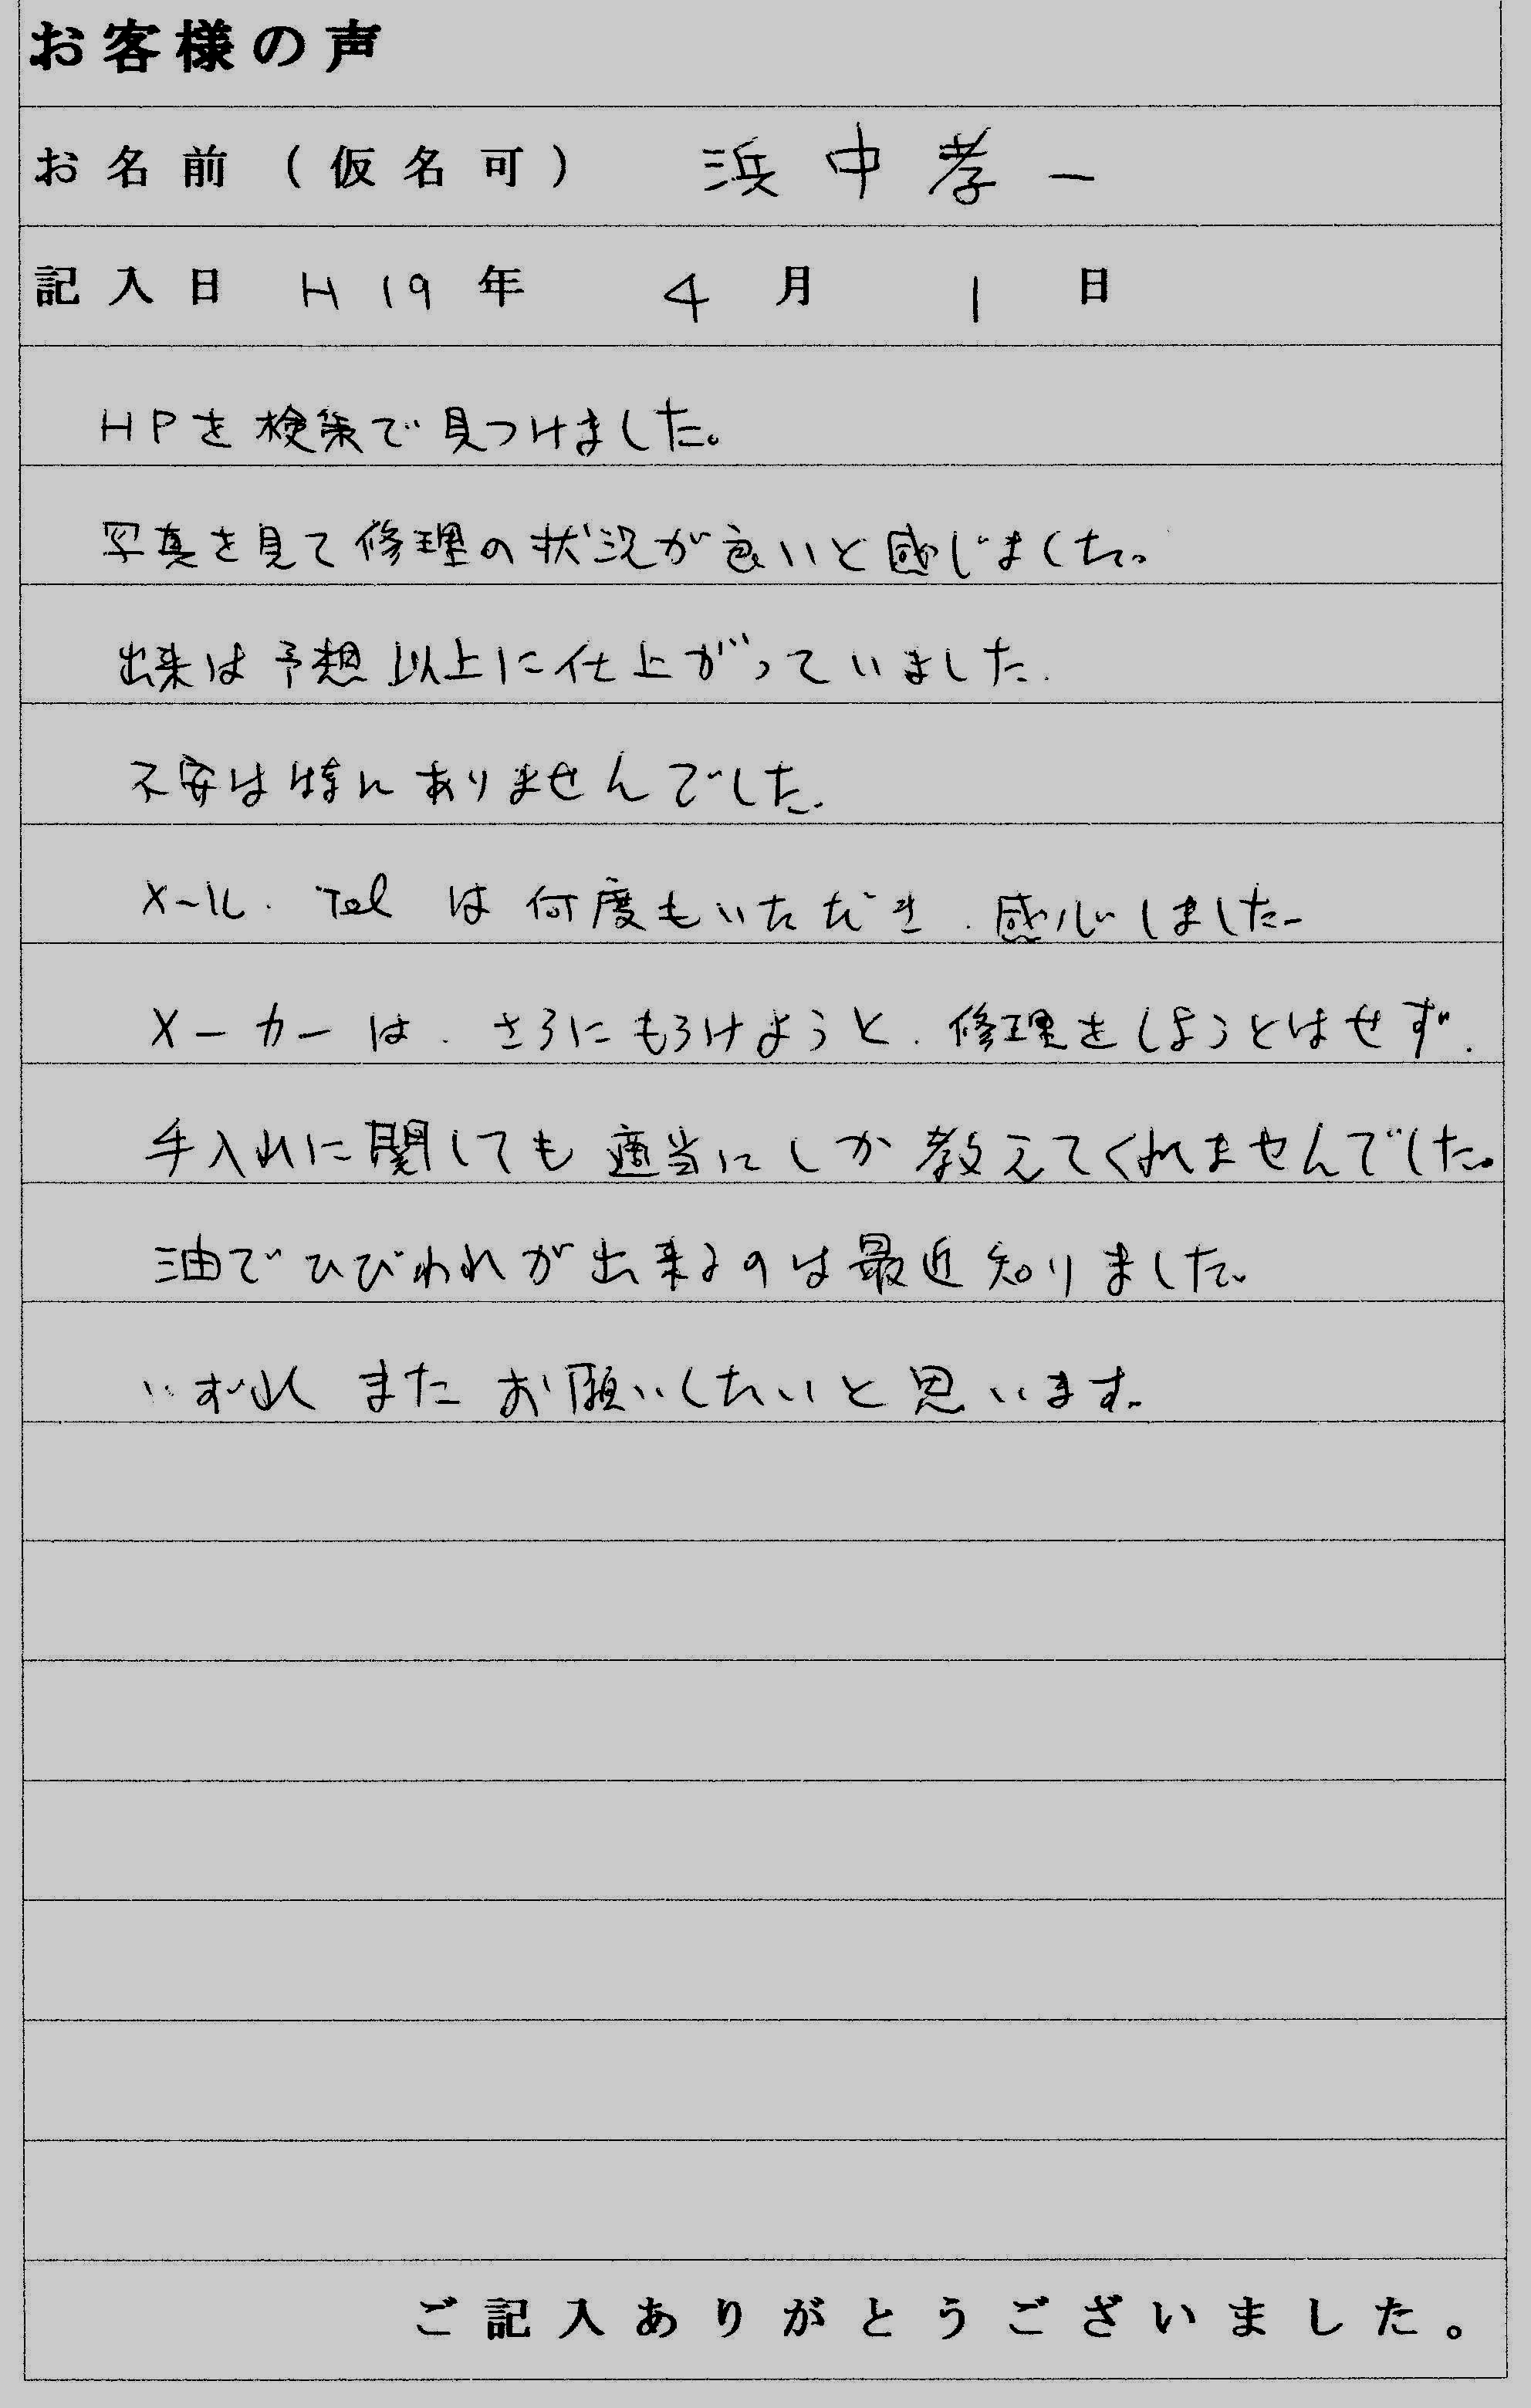 お客様の声
お名前(仮名可) 浜中孝一
記入日 H19年 4月 1日
HPを検索で見つけました。
写真を見て修理の状況が良いと感じました。
出来は予想以上に仕上がっていました.
不安は特にありませんでした.
メール. Tel は何度もいただき. 感心しました-
メーカーは. さらにもうけようと. 修理をしようとはせず.
手入れに関しても適当にしか教えてくれませんでした。
油でひびわれが出来るのは最近知りました。
いずれ また お願いしたいと思います.
ご記入ありがとうございました。